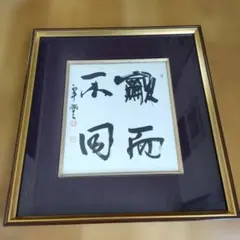 龢而
不同